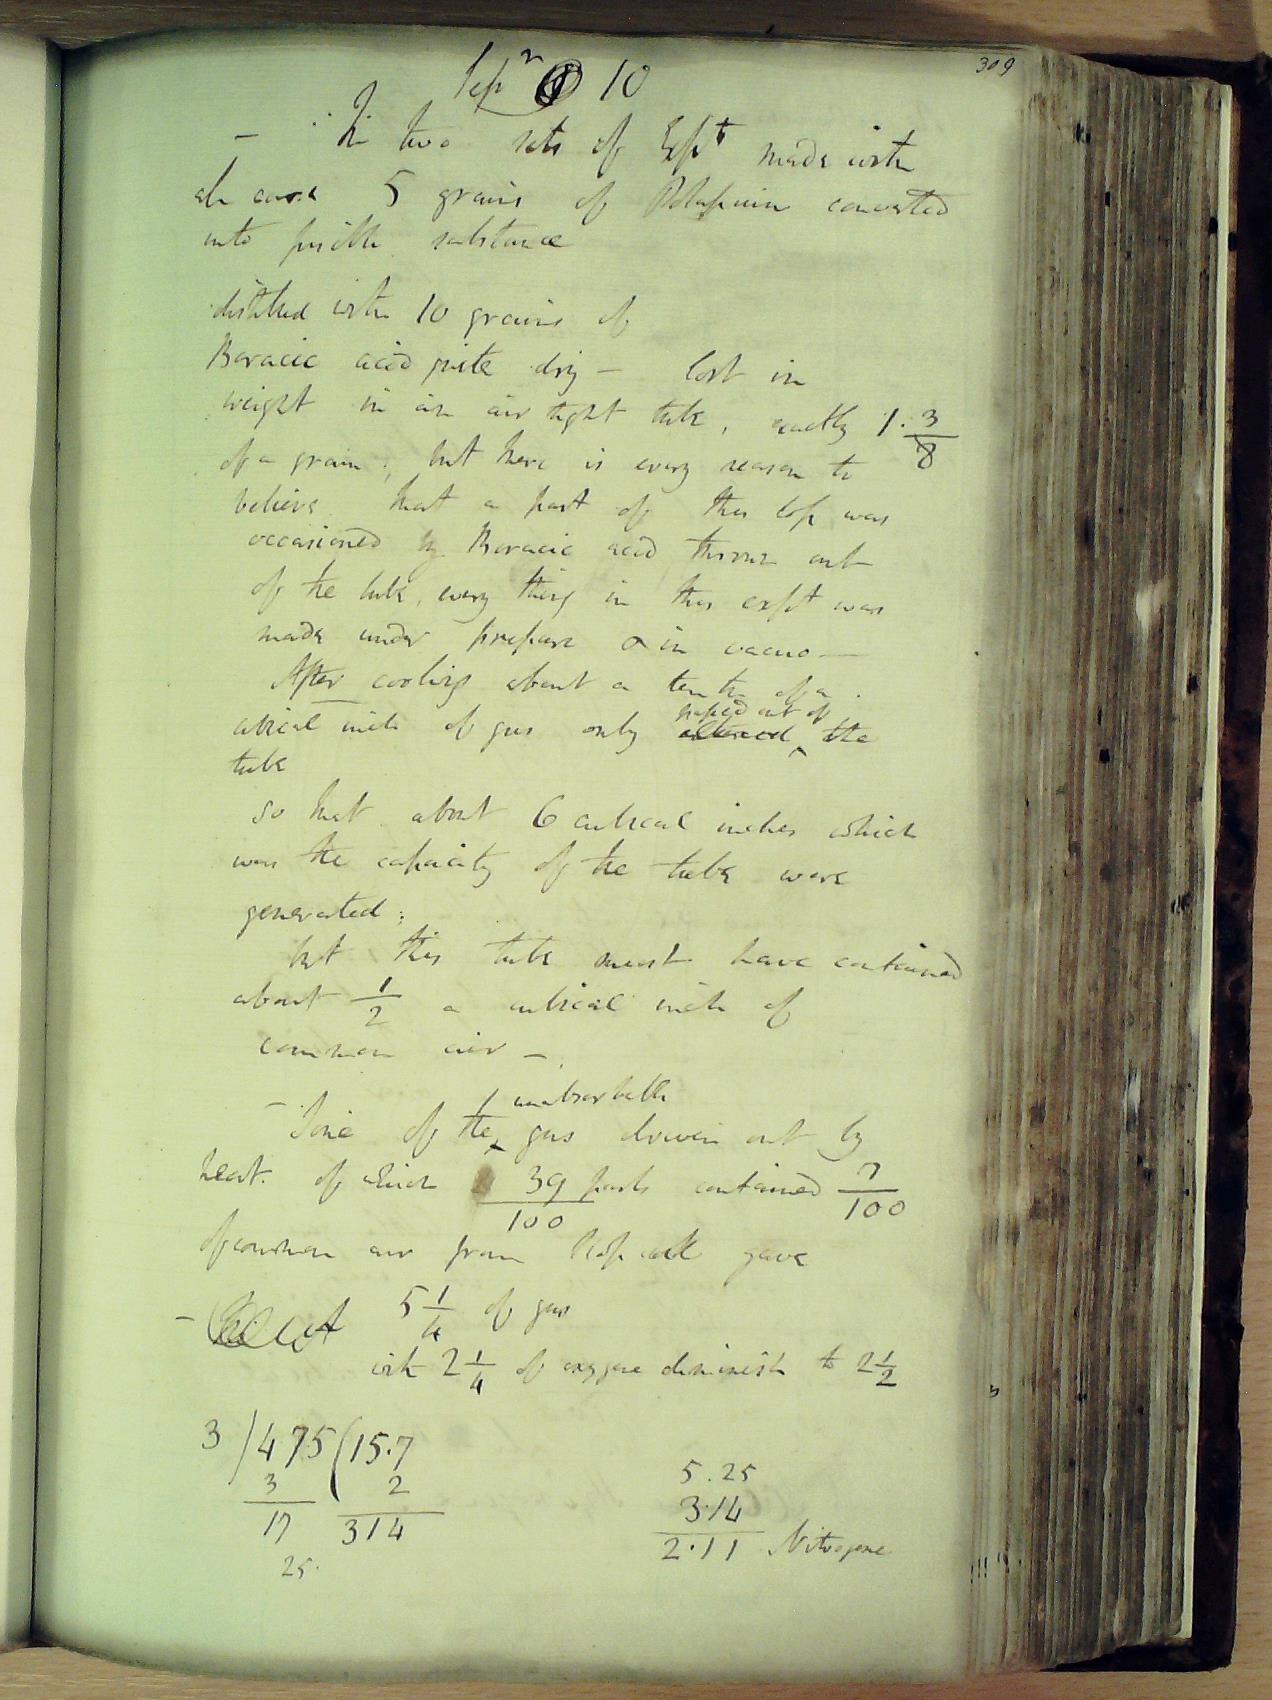 309
Sepr 10
- In two sets of Expts made with
5 grains of Potassium converted
into fusible substance
distilled with 10 grains of
Boracic acid quite dry - lost in
weight in an air tight tube, exactly 1. 3/8
of a grain; but there is every reason to
believe that a part of this loss was
occasioned by Boracic acid thrown out
of the tube, every thing in this expt was
made under & in vacuo -
After cooling about a tenth of a
cubical inch of gas only passed out of the
tube
so that about 6 cubical inches which
was the capacity of the tube were
generated;
but this tube must have contained
about 1/2 a cubical inch of
common air -
- Some of the unabsorbable gas driven out by
heat. of which 39/100 parts contained 7/100
of common air from gave
- 5 1/4 of gas
with 2 1/4 of oxygene diminish to 2 1/2
3 / 475 ( 15.7
3 2
17 314
25.
5.25
3.14
2.11 Nitrogene